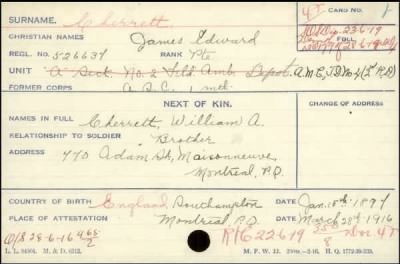 SURNAME. Cherrett 45 CARD NO. 1
CHRISTIAN NAMES James Edward
REGL. NO. 526637 RANK Pte 23-6-19
UNIT A Sect. No. 2 Fld Amb. Depot. A.M.C., T.D. No 4
FORMER CORPS 1 mth
NEXT OF KIN. CHANGE OF ADDRESS
NAMES IN FULL Cherrett, William A.
RELATIONSHIP TO SOLDIER Brother
ADDRESS 470 Adam St., Maisonneuve,
Montreal, P.Q.
COUNTRY OF BIRTH England, Southampton DATE Jan. 18th 1897
PLACE OF ATTESTATION Montreal P.Q. DATE March 28th 1916
O/S 28-6-16 R/C 22-6-19
L. L. M. & D. M. F. W. 22. H. Q. 1772-39-339.